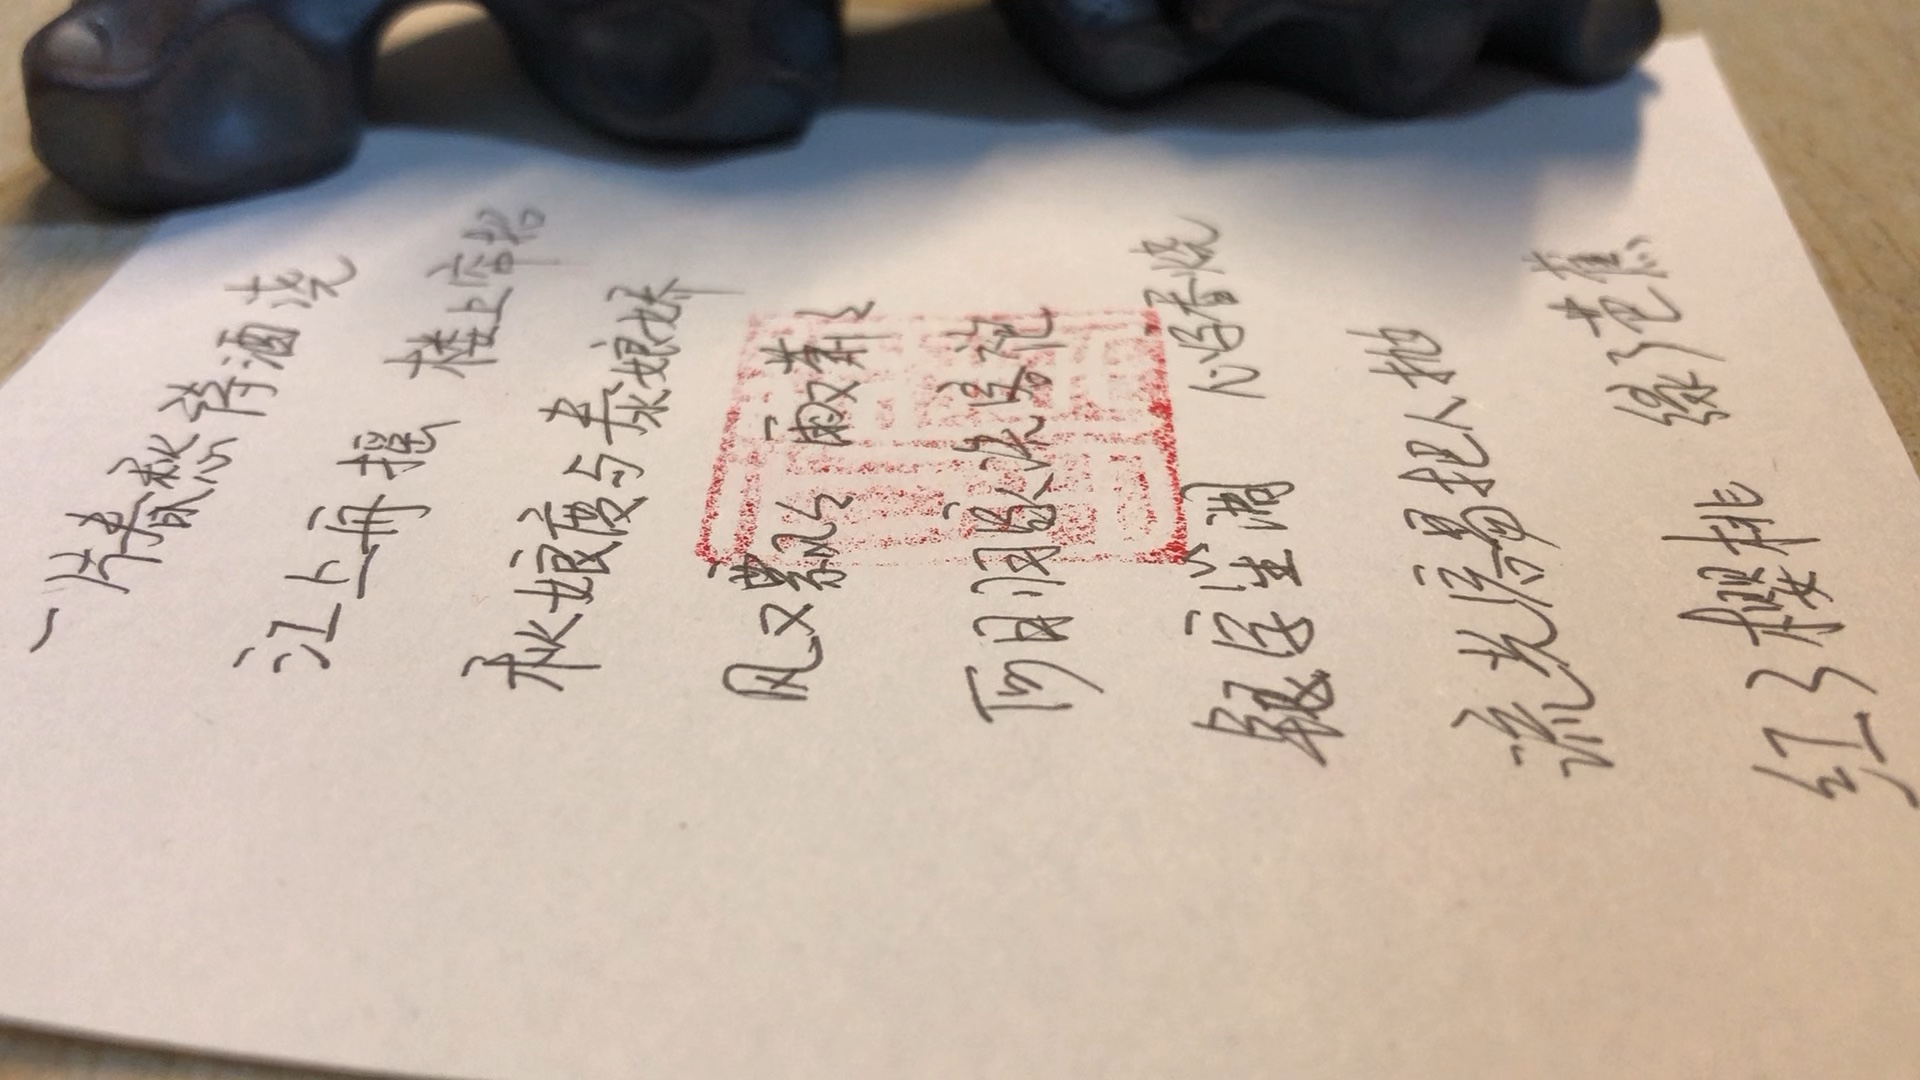 一片春愁待酒浇
江上舟摇 楼上帘招
秋娘度与泰娘娇
风又飘々 雨又萧々
何日归家洗客袍
银字笙调 心字香烧
流光容易把人抛
红了樱桃 绿了芭蕉